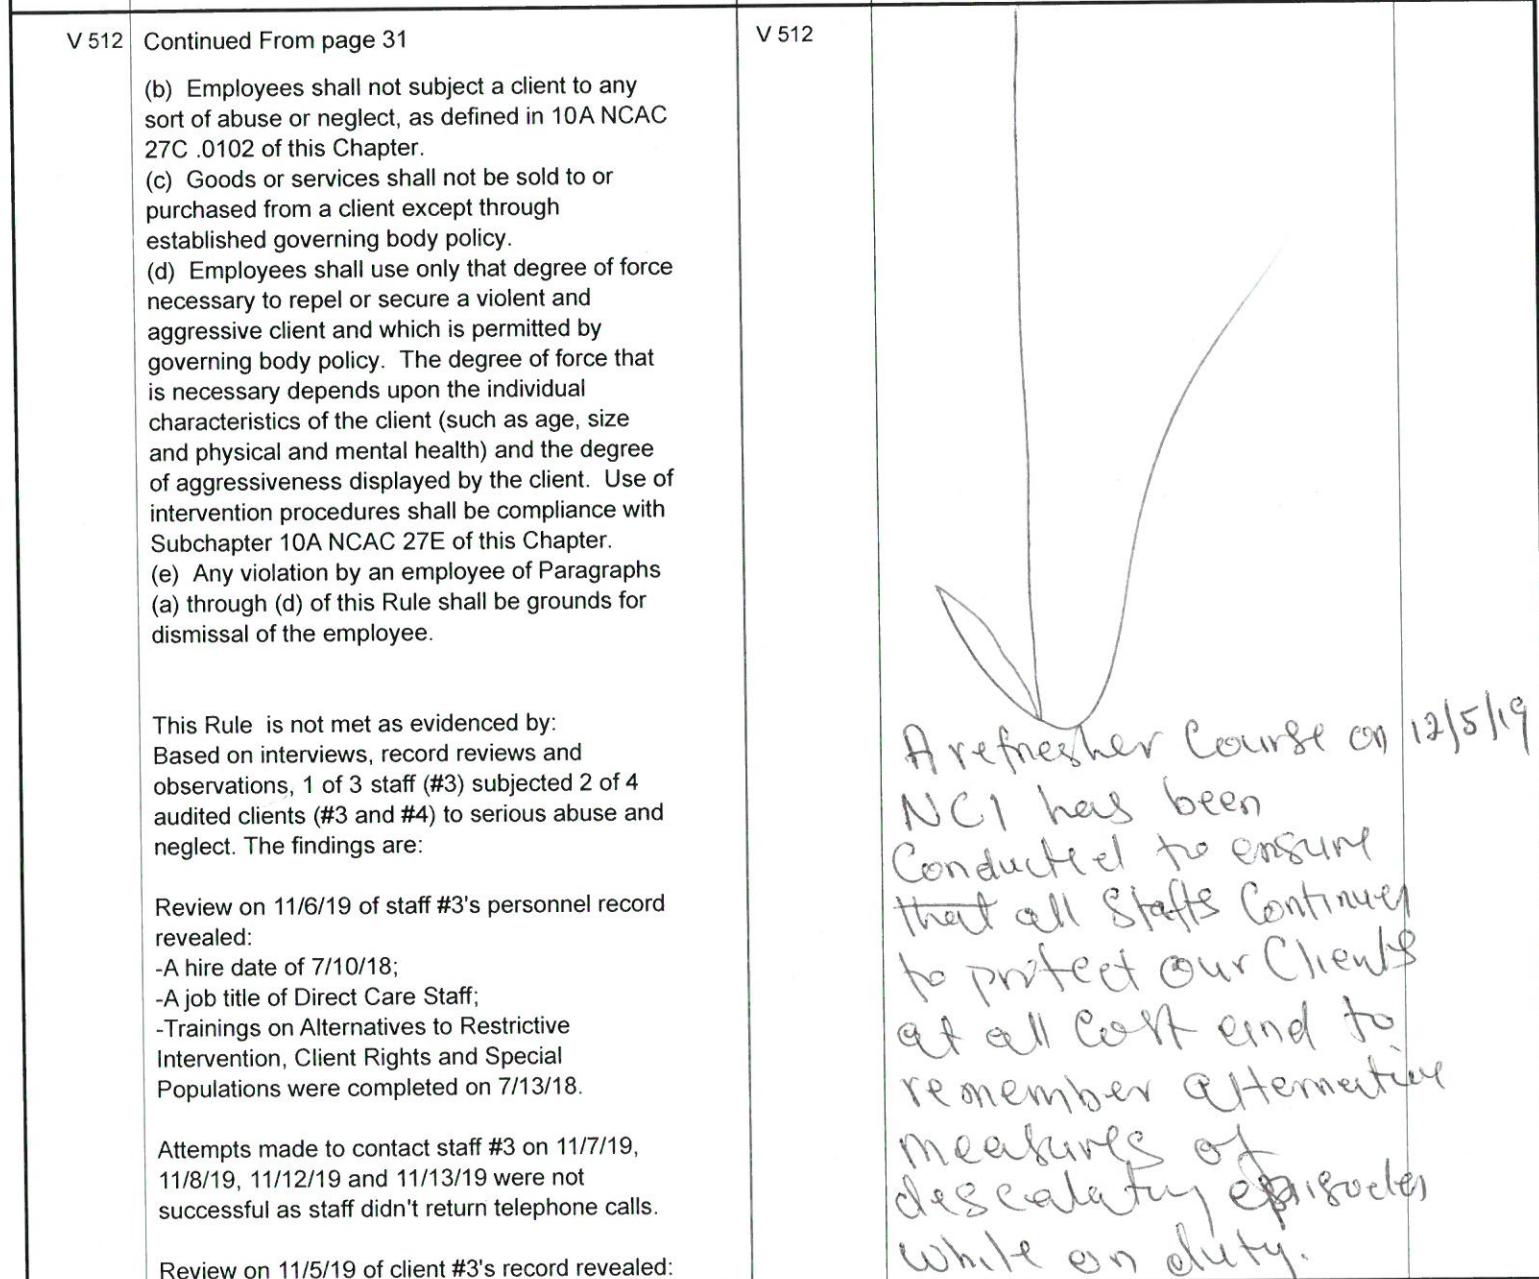 V 512
Continued From page 31
(b) Employees shall not subject a client to any
sort of abuse or neglect, as defined in 10A NCAC
27C .0102 of this Chapter.
(c) Goods or services shall not be sold to or
purchased from a client except through
established governing body policy.
(d) Employees shall use only that degree of force
necessary to repel or secure a violent and
aggressive client and which is permitted by
governing body policy. The degree of force that
is necessary depends upon the individual
characteristics of the client (such as age, size
and physical and mental health) and the degree
of aggressiveness displayed by the client. Use of
intervention procedures shall be compliance with
Subchapter 10A NCAC 27E of this Chapter.
(e) Any violation by an employee of Paragraphs
(a) through (d) of this Rule shall be grounds for
dismissal of the employee.
This Rule is not met as evidenced by:
Based on interviews, record reviews and
observations, 1 of 3 staff (#3) subjected 2 of 4
audited clients (#3 and #4) to serious abuse and
neglect. The findings are:
Review on 11/6/19 of staff #3's personnel record
revealed:
-A hire date of 7/10/18;
-A job title of Direct Care Staff;
-Trainings on Alternatives to Restrictive
Intervention, Client Rights and Special
Populations were completed on 7/13/18.
Attempts made to contact staff #3 on 11/7/19,
11/8/19, 11/12/19 and 11/13/19 were not
successful as staff didn't return telephone calls.
Review on 11/5/19 of client #3's record revealed:
V 512
A refresher Course on 12/5/19
NCI has been
Conducted to ensure
that all Staffs Continues
to protect our Clients
at all Cost and to
remember alternative
measures of
descalating episodes
while on duty.